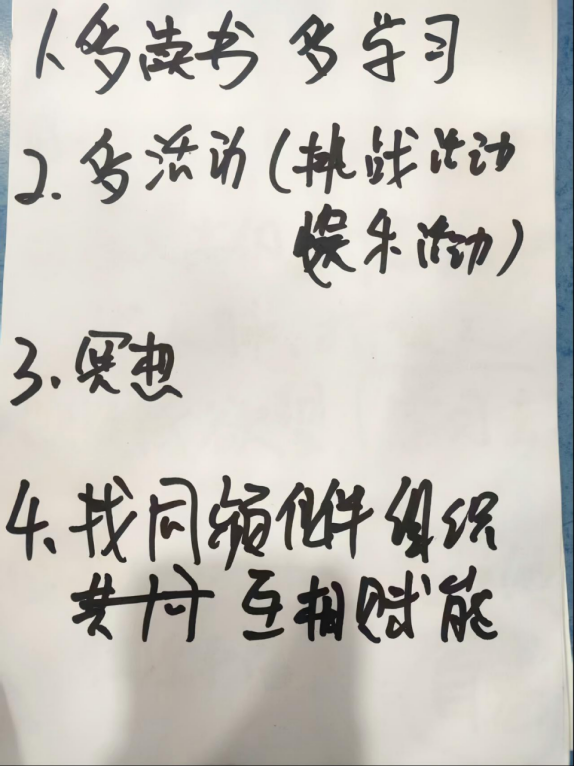 1.多读书 多学习
2.多活动(挑战活动
娱乐活动)
3.冥想
4.找同频伙伴 组织
互相赋能